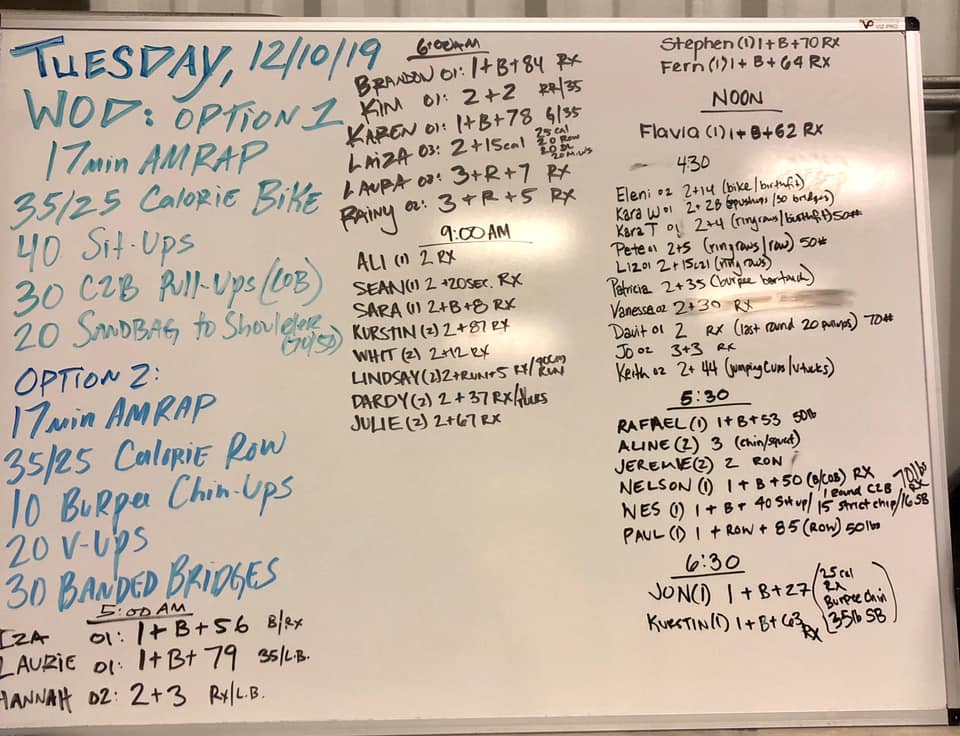 TUESDAY, 12/10/19
WOD: OPTION 1
17min AMRAP
35/25 CALORIE BIKE
40 Sit-Ups
30 C2B Pull-Ups (COB)
20 SANDBAG to Shoulder
OPTION 2:
17min AMRAP
35/25 CALORIE ROW
10 BURPEE Chin-Ups
20 V-Ups
30 BANDED BRIDGES
5:00 AM
IZA 01: 1+B+56 B/RX
LAURIE 01: 1+B+79 35/L.B.
HANNAH 02: 2+3 RX/L.B.
6:00AM
BRANDON 01: 1+B+84 RX
KIM 01: 2+2 RR/35
KAREN 01: 1+B+78 G/35
LAIZA 03: 2+15cal 25 cal
LAURA 02: 3+R+7 RX
RAINY 02: 3+R+5 RX
9:00 AM
ALI (1) 2 RX
SEAN(1) 2 +20SEC. RX
SARA (1) 2+B+8 RX
KURSTIN (2) 2+87 RX
WHIT (2) 2+12 RX
LINDSAY (2) 2+RUN+5 RX/400M RUN
DARDY (2) 2+37 RX/
JULIE (2) 2+67 RX
Stephen (1) 1+B+70 RX
Fern (1) 1+B+64 RX
NOON
Flavia (1) 1+B+62 RX
4:30
Eleni 02 2+14 (bike/birthfit)
Kara W 01 2+28 (pushups/30 bridges)
Kara T 01 2+4 (ringrows/birthfit) 50#
Pete 01 2+5 (ringrows/row) 50#
Liz 01 2+15cal (ring rows)
Patricia 2+35 (burpee bartouch)
Vanessa 02 2+30 RX
Davit 01 2 RX (last round 20 pullups) 70#
Jo 02 3+3 RX
Keith 02 2+44 (jumping CUPS/Vtucks)
5:30
RAFAEL (1) 1+B+53 50lb
ALINE (2) 3 (chin/squat)
JEREMIE(2) 2 ROW
NELSON (1) 1+B+50 (B/COB) RX
WES (1) 1+B+ 40 Situp/ 1 Round C2B / 15 strict chip/16 SB 70lbs RX
PAUL (1) 1+ROW+85 (ROW) 50lbs
6:30
JON(1) 1+B+27 (25 cal
RX
Burpee Chin
35lb SB)
KURSTIN(1) 1+B+63 RX